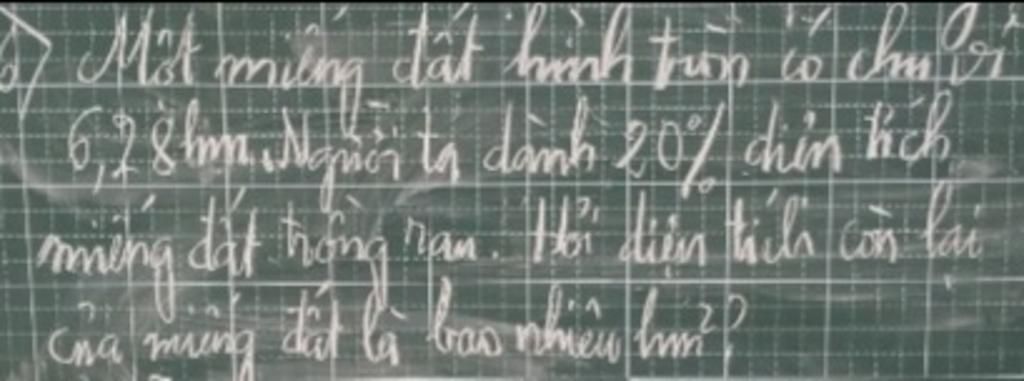 b) Một miếng đất hình tròn có chu vi
6,28hm. Người ta dành 20% diện tích
miếng đất trồng rau. Hỏi diện tích còn lại
của miếng đất là bao nhiêu hm²?